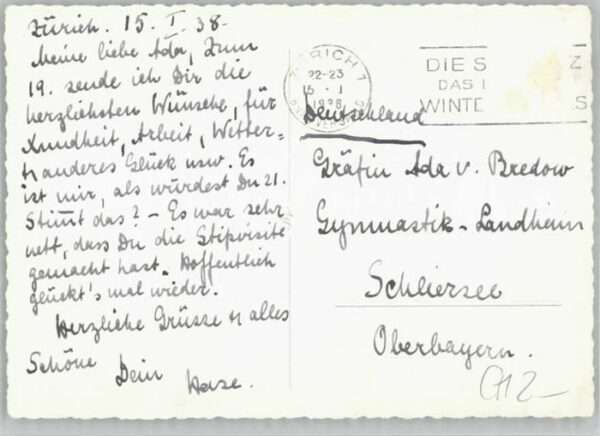 Zürich. 15. I. 38.
Meine liebe Ada, Zum
19. sende ich Dir die
herzlichsten Wünsche, für
Xundheit, Arbeit, Wetter=
u anderes Glück usw. Es
ist mir, als würdest Du 21.
Stimt das? - Es war sehr
nett, dass Du die Stipvisite
gemacht hast. Hoffentlich
glückt's mal wieder.
Herzliche Grüsse u alles
Schöne Dein
Hase.
ZÜRICH 1
22-23
15. I
1938
DIE S Z
DAS I
WINTE S
Deutschland
Gräfin Ada v. Bredow
Gymnastik-Landheim
Schliersee
Oberbayern.